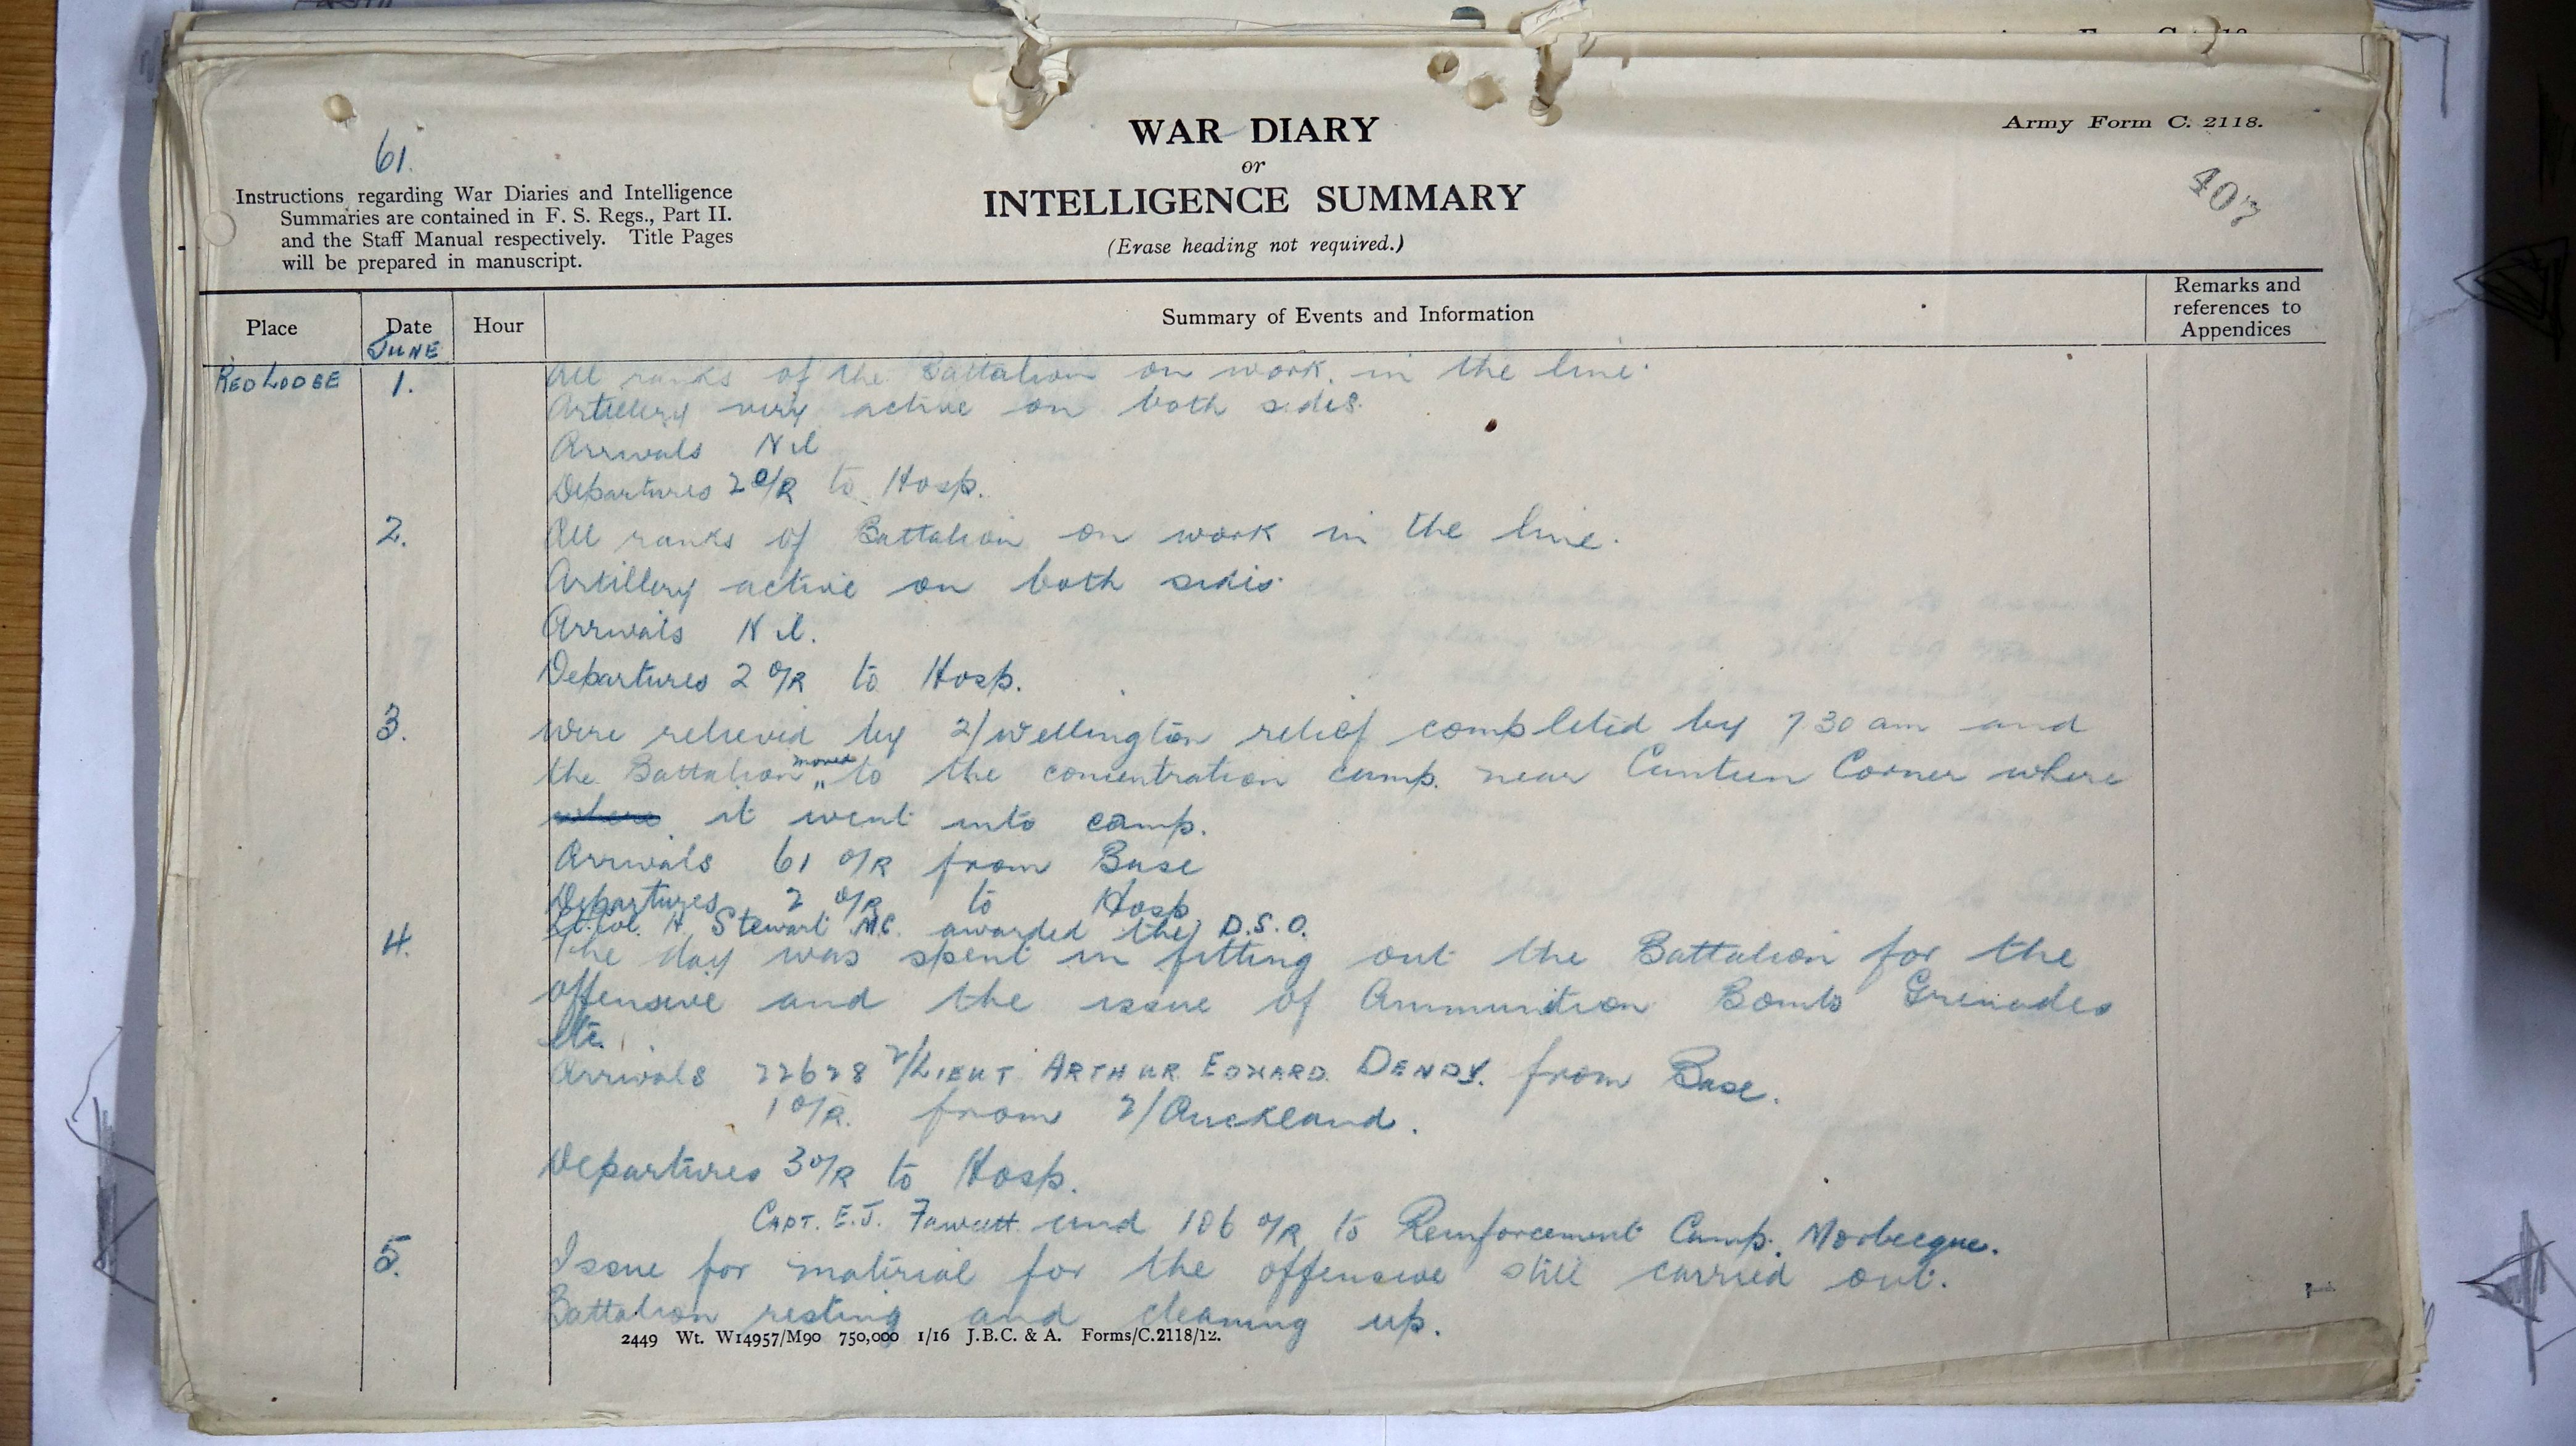 61.
Instructions regarding War Diaries and Intelligence
Summaries are contained in F. S. Regs., Part II.
and the Staff Manual respectively. Title Pages
will be prepared in manuscript.
WAR DIARY
or
INTELLIGENCE SUMMARY
(Erase heading not required.)
Army Form C. 2118.
407
Place
Date
Hour
Summary of Events and Information
Remarks and
references to
Appendices
JUNE
RED LODGE 1. All ranks of the Battalion on work in the line.
Artillery very active on both sides.
Arrivals Nil
Departures 2 O/R to Hosp.
2. All ranks of Battalion on work in the line.
Artillery active on both sides.
Arrivals Nil.
Departures 2 O/R to Hosp.
3. Were relieved by 2/Wellington relief completed by 7 30 am and
the Battalion moved to the concentration camp near Canteen Corner where
where it went into camp.
Arrivals 61 O/R from Base
Departures 2 O/R to Hosp
Lt. Col. H. Stewart M.C. awarded the D.S.O.
4. The day was spent in fitting out the Battalion for the
offensive and the issue of Ammunition Bombs Grenades
etc.
Arrivals 22628 2/LIEUT ARTHUR EDWARD DENDY. from Base.
1 O/R. from 2/Auckland.
Departures 3 O/R to Hosp.
CAPT. E.J. Fawcett and 106 O/R to Reinforcement Camp. Morbecque.
5. Issue for material for the offensive still carried out.
Battalion resting and cleaning up.
2449 Wt. W14957/M90 750,000 1/16 J.B.C. & A. Forms/C.2118/12.